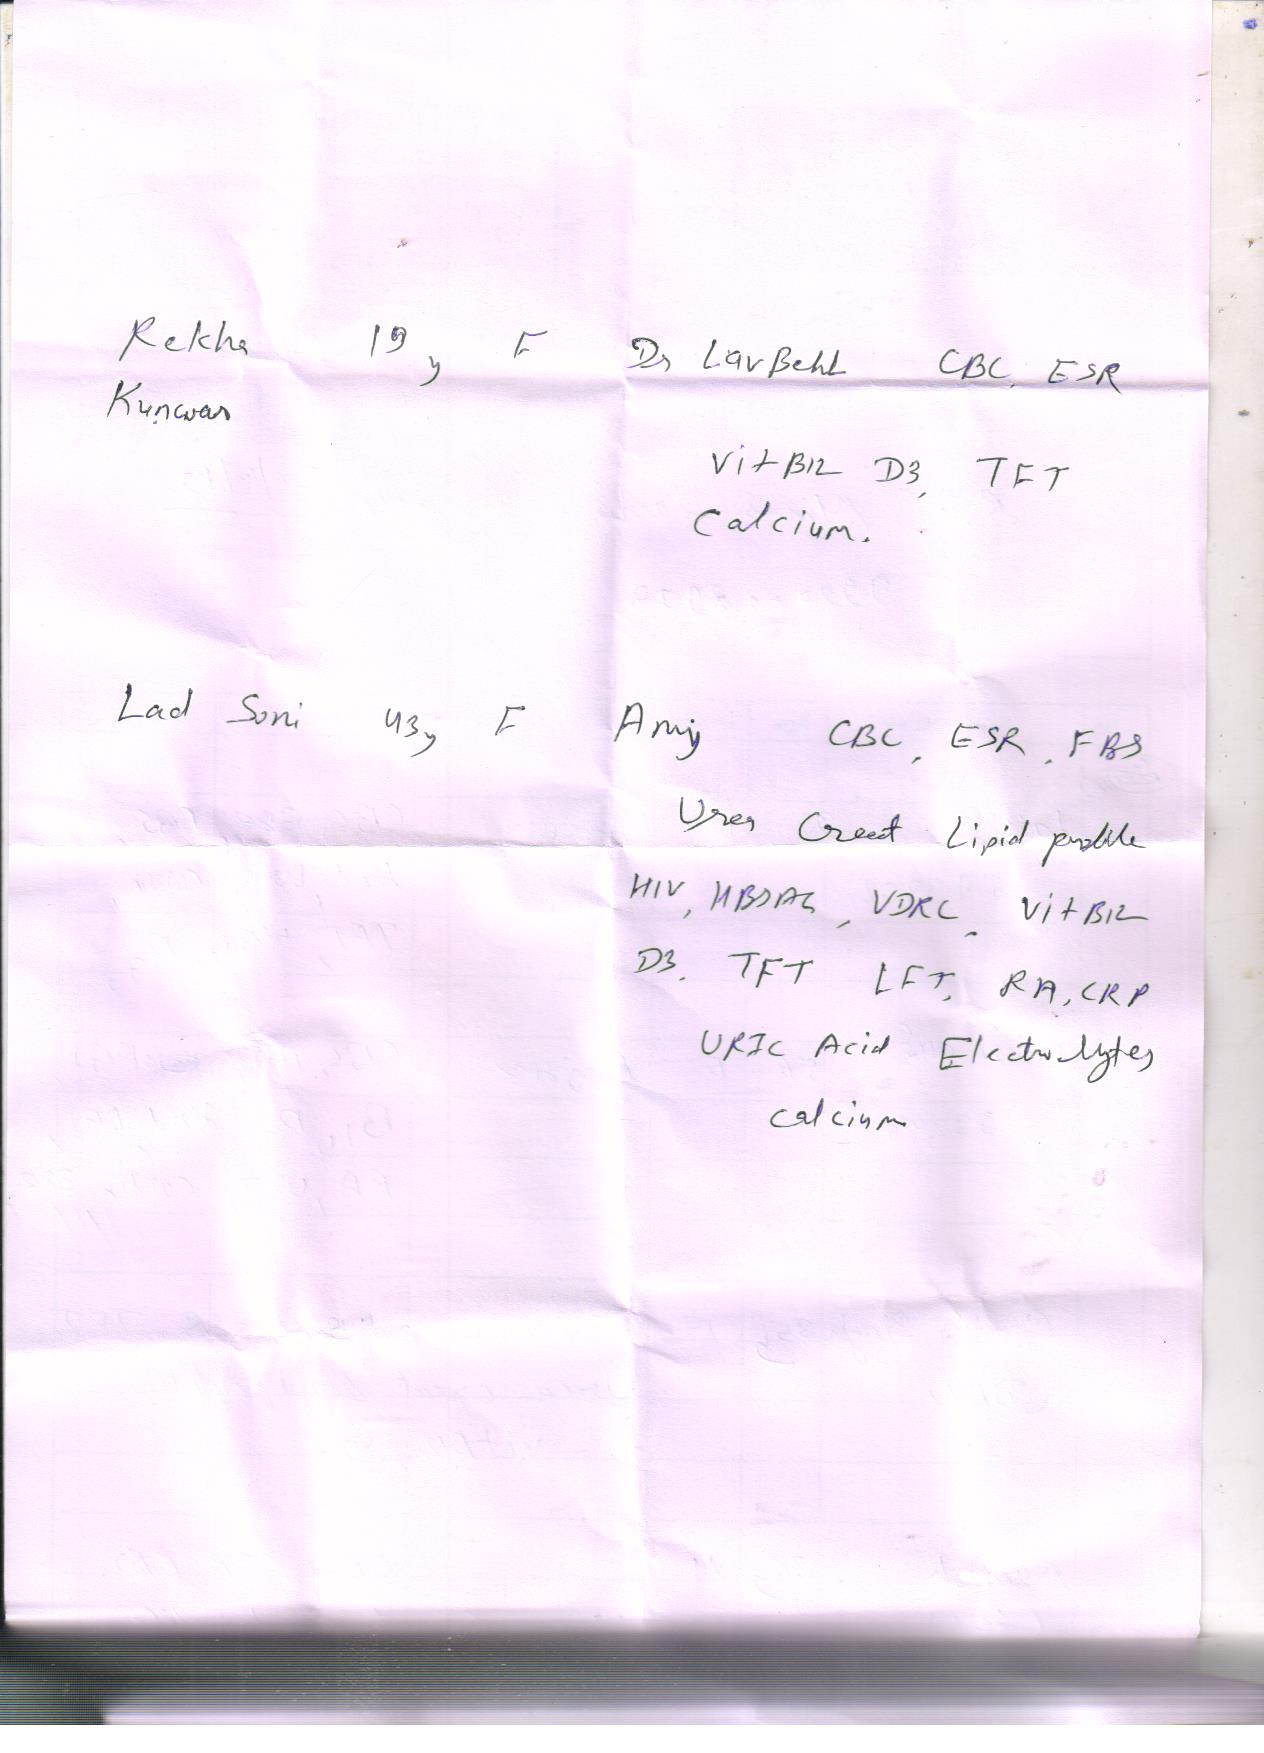 Rekha 19 y F Dr Lav Behl CBC, ESR
Kunwar
Vit B12 D3, TFT
Calcium.
Lad Soni 43y F CBC, ESR, FBS
Urea Creat Lipid profile
HIV, HBSAG, VDRL, Vit B12
D3, TFT LFT, RA, CRP
URIC Acid Electrolytes
calcium